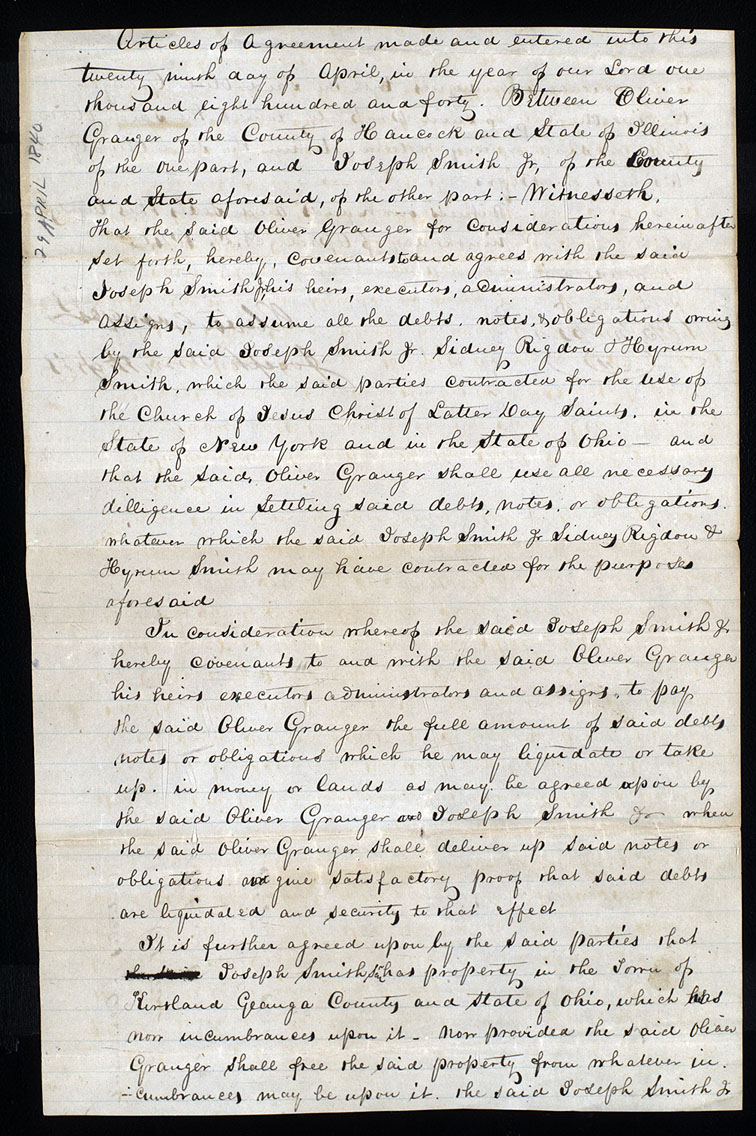 Articles of Agreement made and entered into this
twenty ninth day of April, in the year of our Lord one
thousand eight hundred and forty. Between Oliver
Granger of the County of Hancock and State of Illinois
of the one part, and Joseph Smith Jr, of the County
and State aforesaid, of the other part:- Witnesseth,
that the said Oliver Granger for considerations hereinafter
set forth, hereby, covenants to and agrees with the said
Joseph Smith Jr his heirs, executors, administrators, and
assigns, to assume all the debts, notes, & obligations owing
by the said Joseph Smith Jr. Sidney Rigdon & Hyrum
Smith, which the said parties contracted for the use of
the Church of Jesus Christ of Latter Day Saints, in the
State of New York and in the State of Ohio — and
that the said, Oliver Granger shall use all necessary
dilligence in settling said debts, notes, or obligations.
whatever which the said Joseph Smith Jr Sidney Rigdon &
Hyrum Smith may have contracted for the purposes
aforesaid
In consideration whereof the said Joseph Smith Jr
hereby covenants to and with the said Oliver Granger
his heirs executors administrators and assigns, to pay
the said Oliver Granger the full amount of said debts
notes or obligations which he may liquidate or take
up. in money or lands as may be agreed upon by
the said Oliver Granger and Joseph Smith Jr when
the said Oliver Granger shall deliver up said notes or
obligations and give satisfactory proof that said debts
are liquidated and security to that effect
It is further agreed upon by the said parties that
Joseph Smith Jr has property in the Town of
Kirtland Geauga County and State of Ohio, which has
now incumbrances upon it - now provided the said Oliver
Granger shall free the said property from whatever in-
-cumbrances may be upon it. the said Joseph Smith Jr
29 APRIL 1840